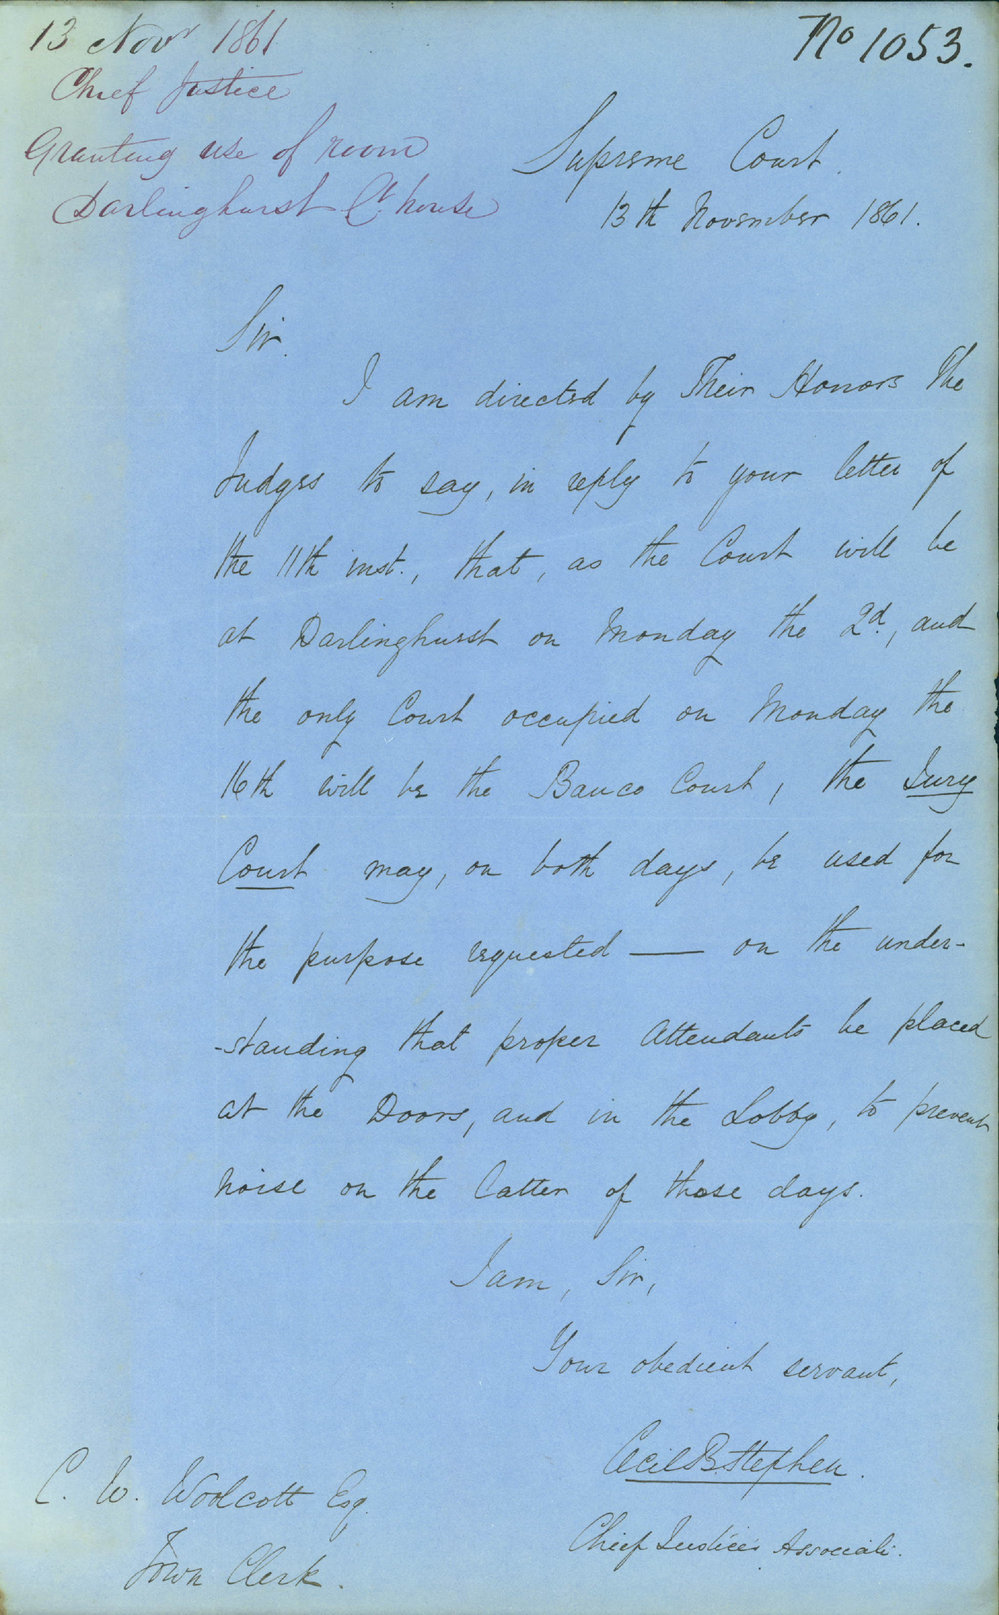 13 Novr 1861
Chief Justice
Granting use of room
Darlinghurst Ct. house
No 1053.
Supreme Court.
13th November 1861.
Sir.
I am directed by Their Honors The
Judges to say, in reply to your letter of
the 11th inst., that, as the Court will be
at Darlinghurst on Monday the 2d., and
the only Court occupied on Monday the
16th will be the Banco Court, the Jury
Court may, on both days, be used for
the purpose requested — on the under-
-standing that proper Attendants be placed
at the Doors, and in the Lobby, to prevent
noise on the latter of those days.
I am, Sir,
Your obedient servant,
Cecil B. Stephen.
Chief Justice's Associate.
C. W. Woolcott Esq.
Town Clerk.